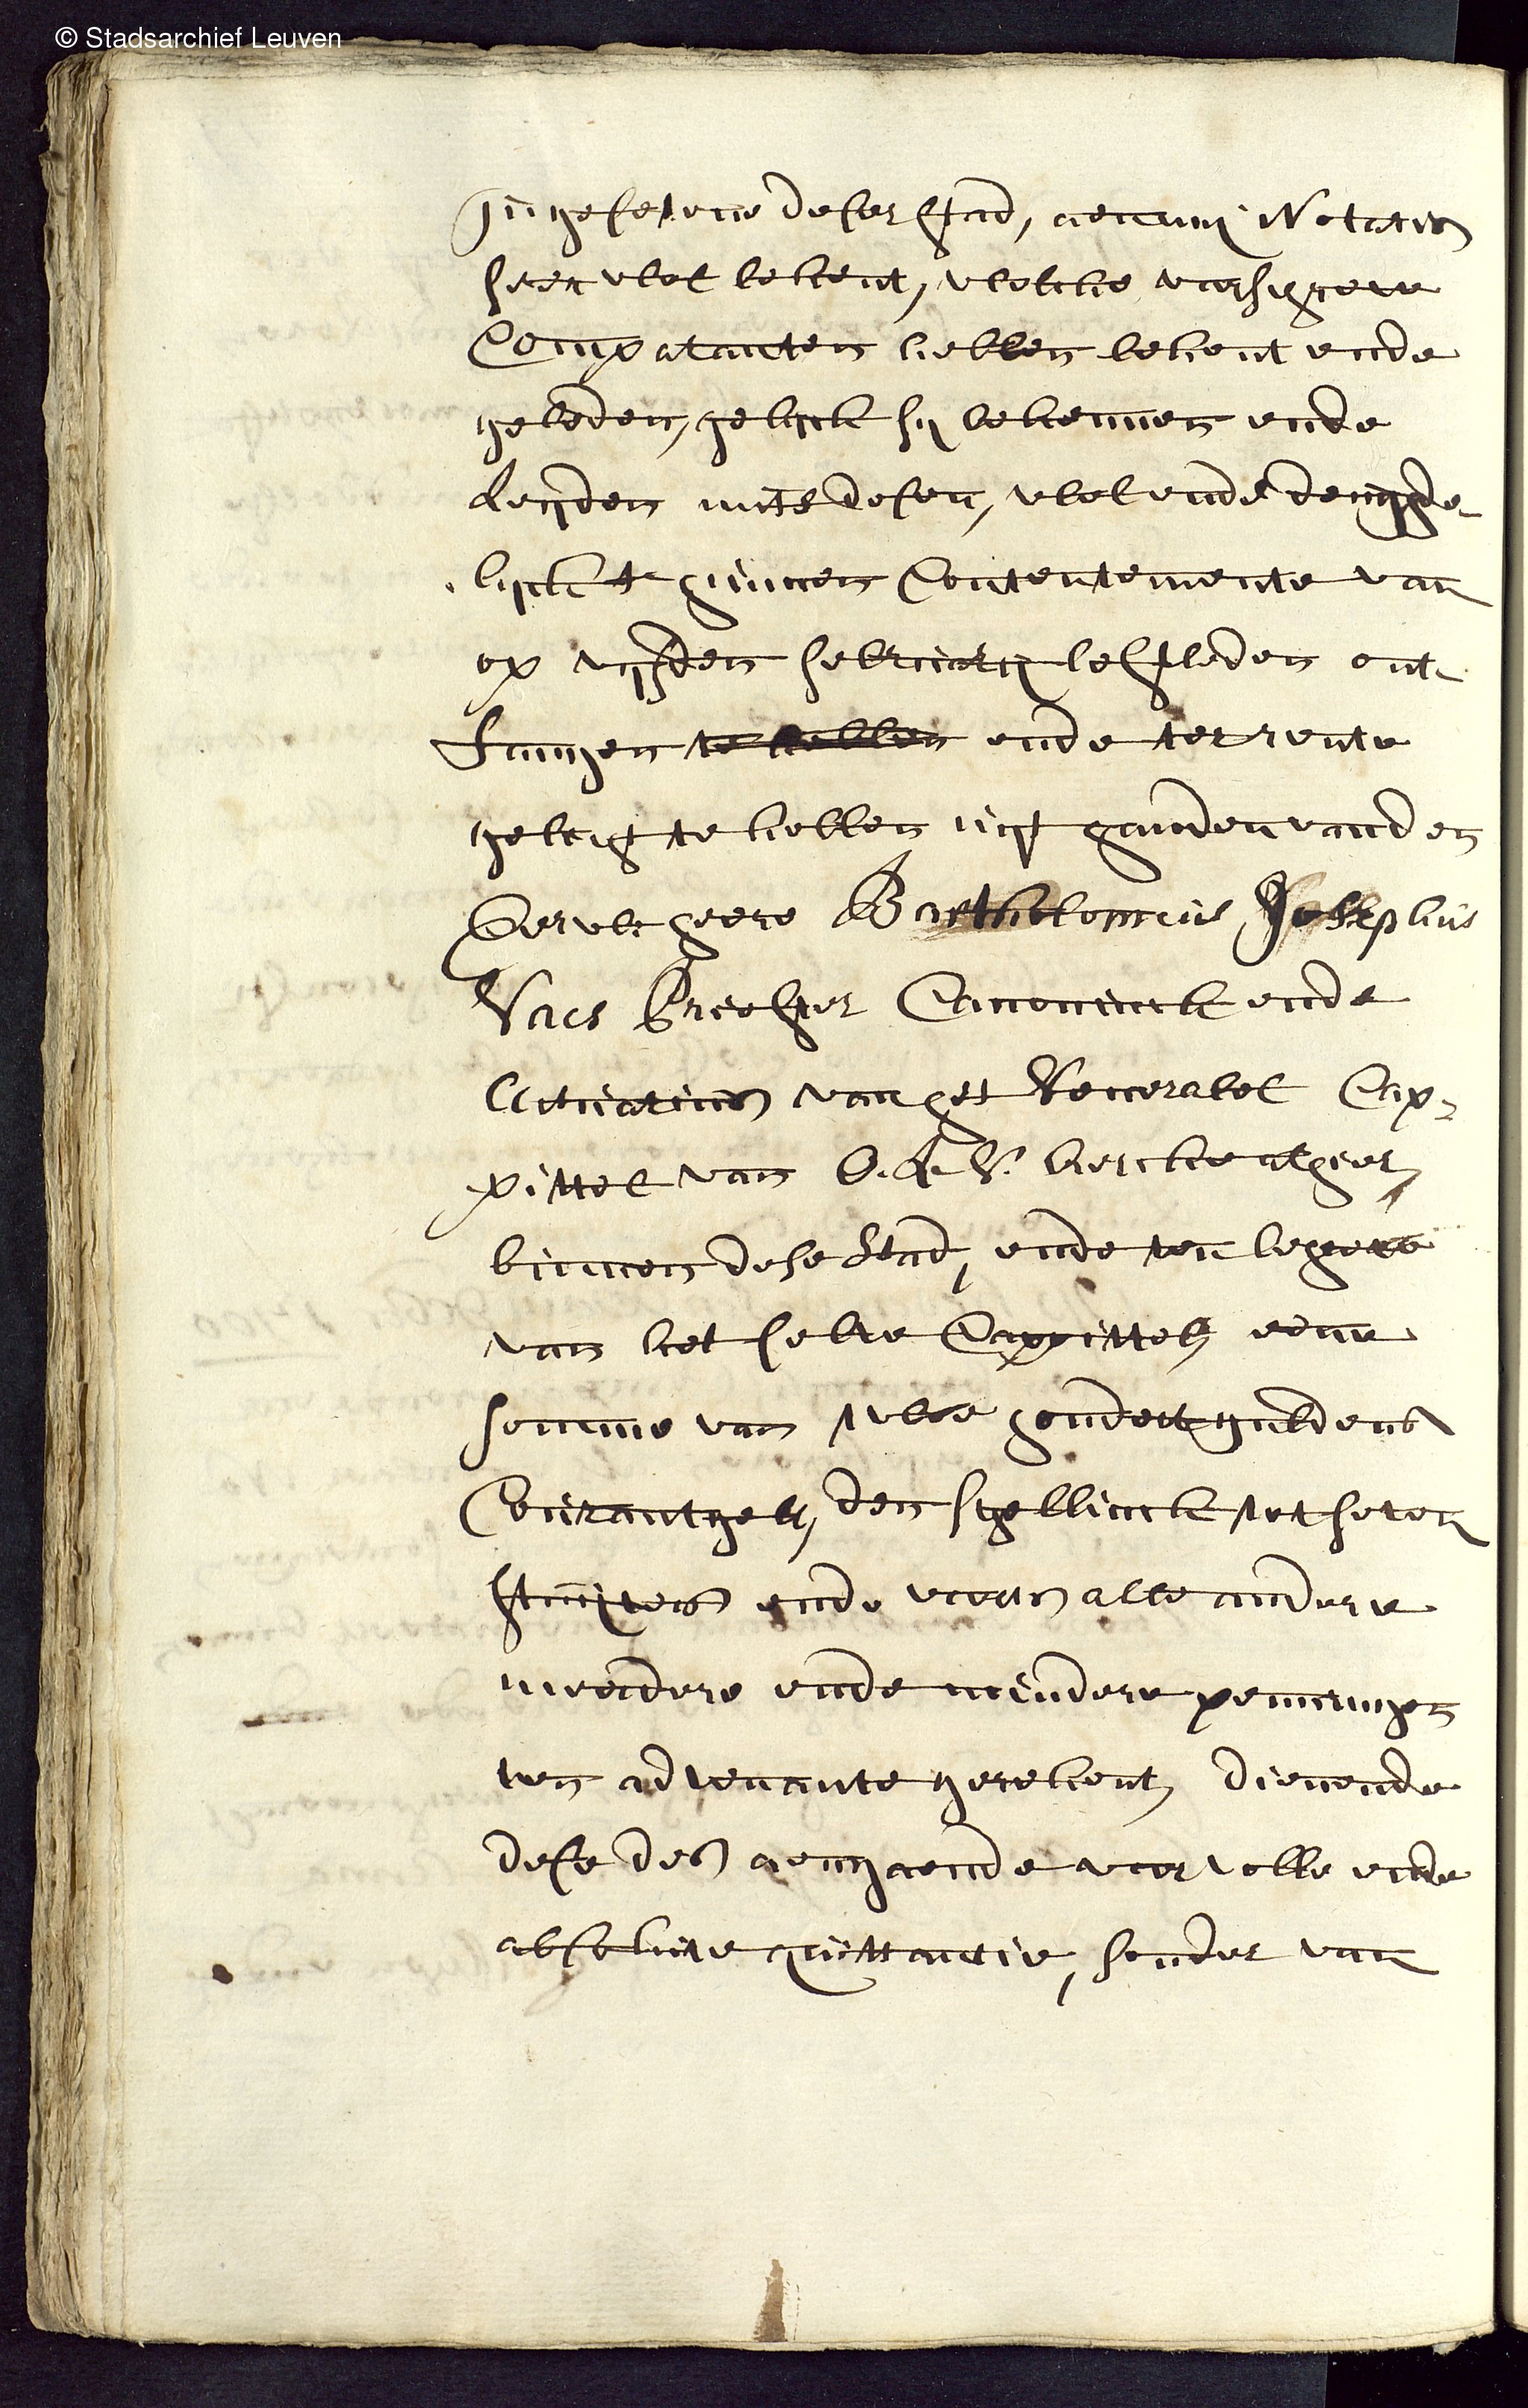 © Stadsarchief Leuven
Ingesetene deser stadt, aen mij Notaris
seer wel bekent, welcke
Comparanten hebben bekent ende
geleden, gelijck sij bekennen ende
leijden mits desen, wel ende deughde-
lijck t' hunnen Contentemente van
op vijfden februarij lestleden ont
fangen te hebben ende ter rente
gelicht te hebben uijt handen van den
Eerw: heere Bartholomeus Josephus
Vaes Priester Canoninck ende
Actuarius van het Venerabel Cap-
pittel van O. L. V. kercke alhier,
binnen dese Stad, ende ten behoeve
van het selve Cappittel, eene
somme van twee hondert guldens
Courantgelt, den schellinck tot seven
stuijvers ende voorts alle andere
meerdere ende mindere penningen
ten advenante gerekent, dienende
dese des aengaende voor volle ende
absolute quittantie, sonder van